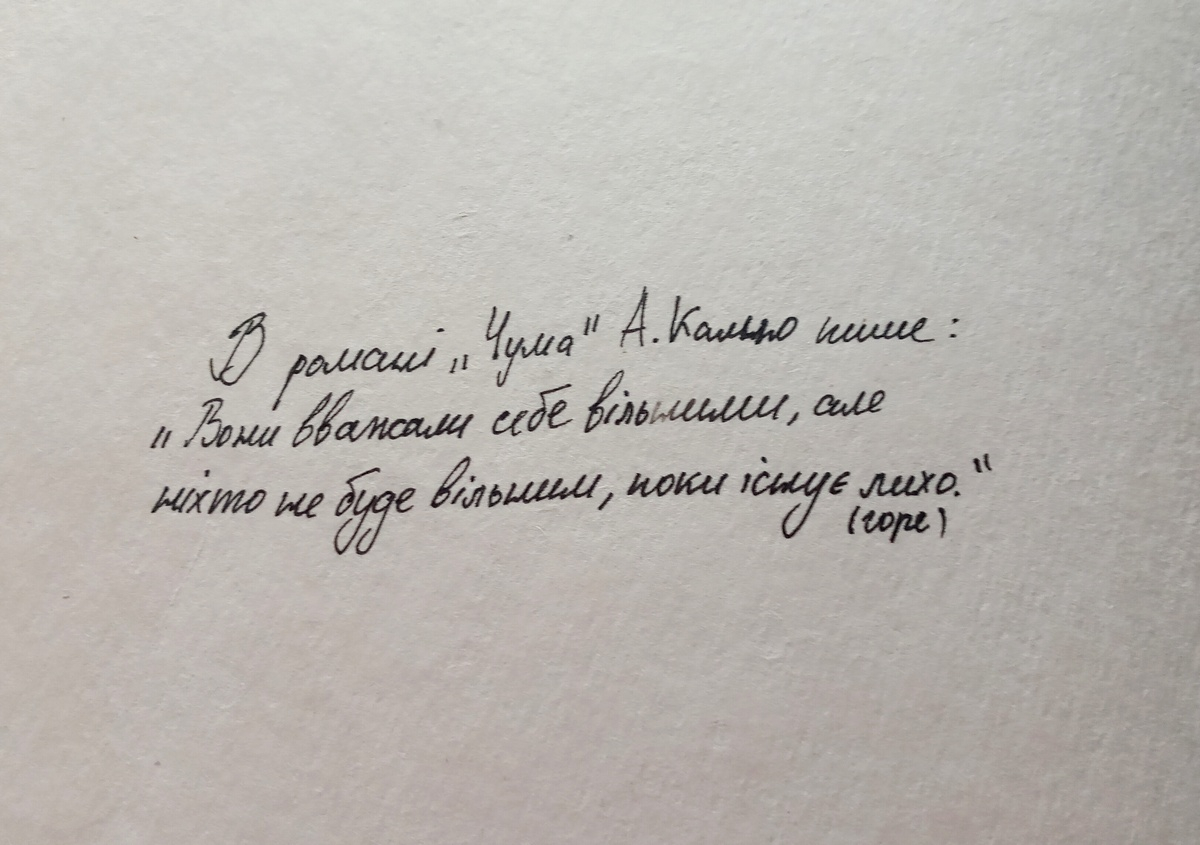 В романі „Чума" А. Камью пише:
„Вони вважали себе вільними, але
ніхто не буде вільним, поки існує лихо."
(горе)